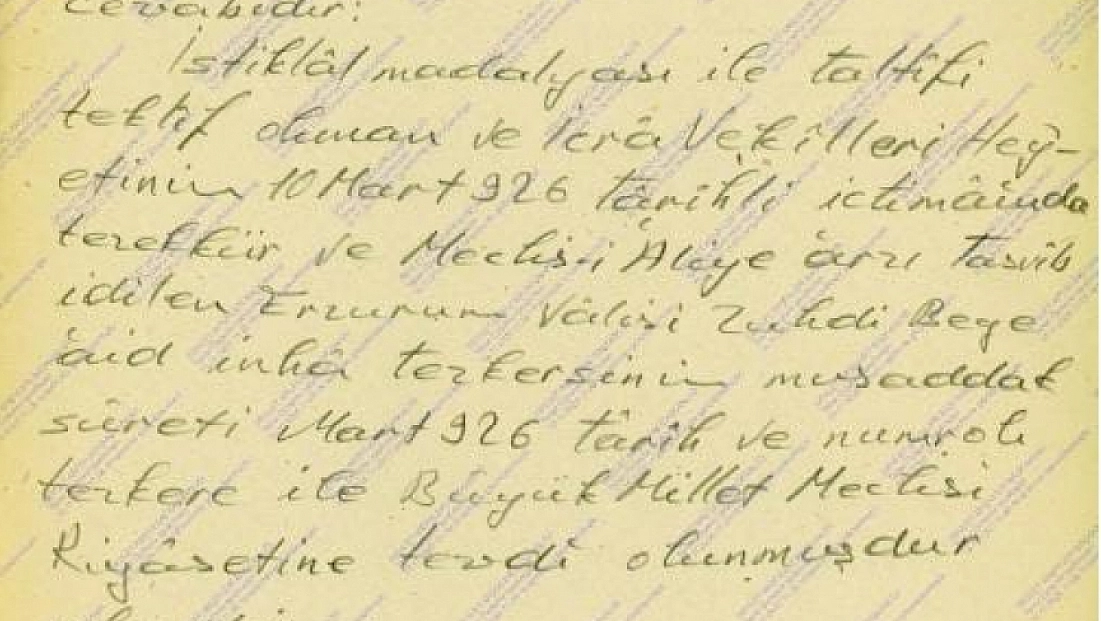 Cevabıdır:
İstiklâl madalyası ile taltîfi
teklif olunan ve İcrâ Vekîlleri Hey-
etinin 10 Mart 926 târihli ictimâında
tezekkür ve Meclis-i Âliye arzı tasvib
idilen Erzurum Vâlisi Zuhdi Beye
âid inhâ tezkersinin musaddak
sûreti Mart 926 târih ve numrolu
tezkere ile Büyük Millet Meclisi
Riyâsetine tevdî olunmuşdur